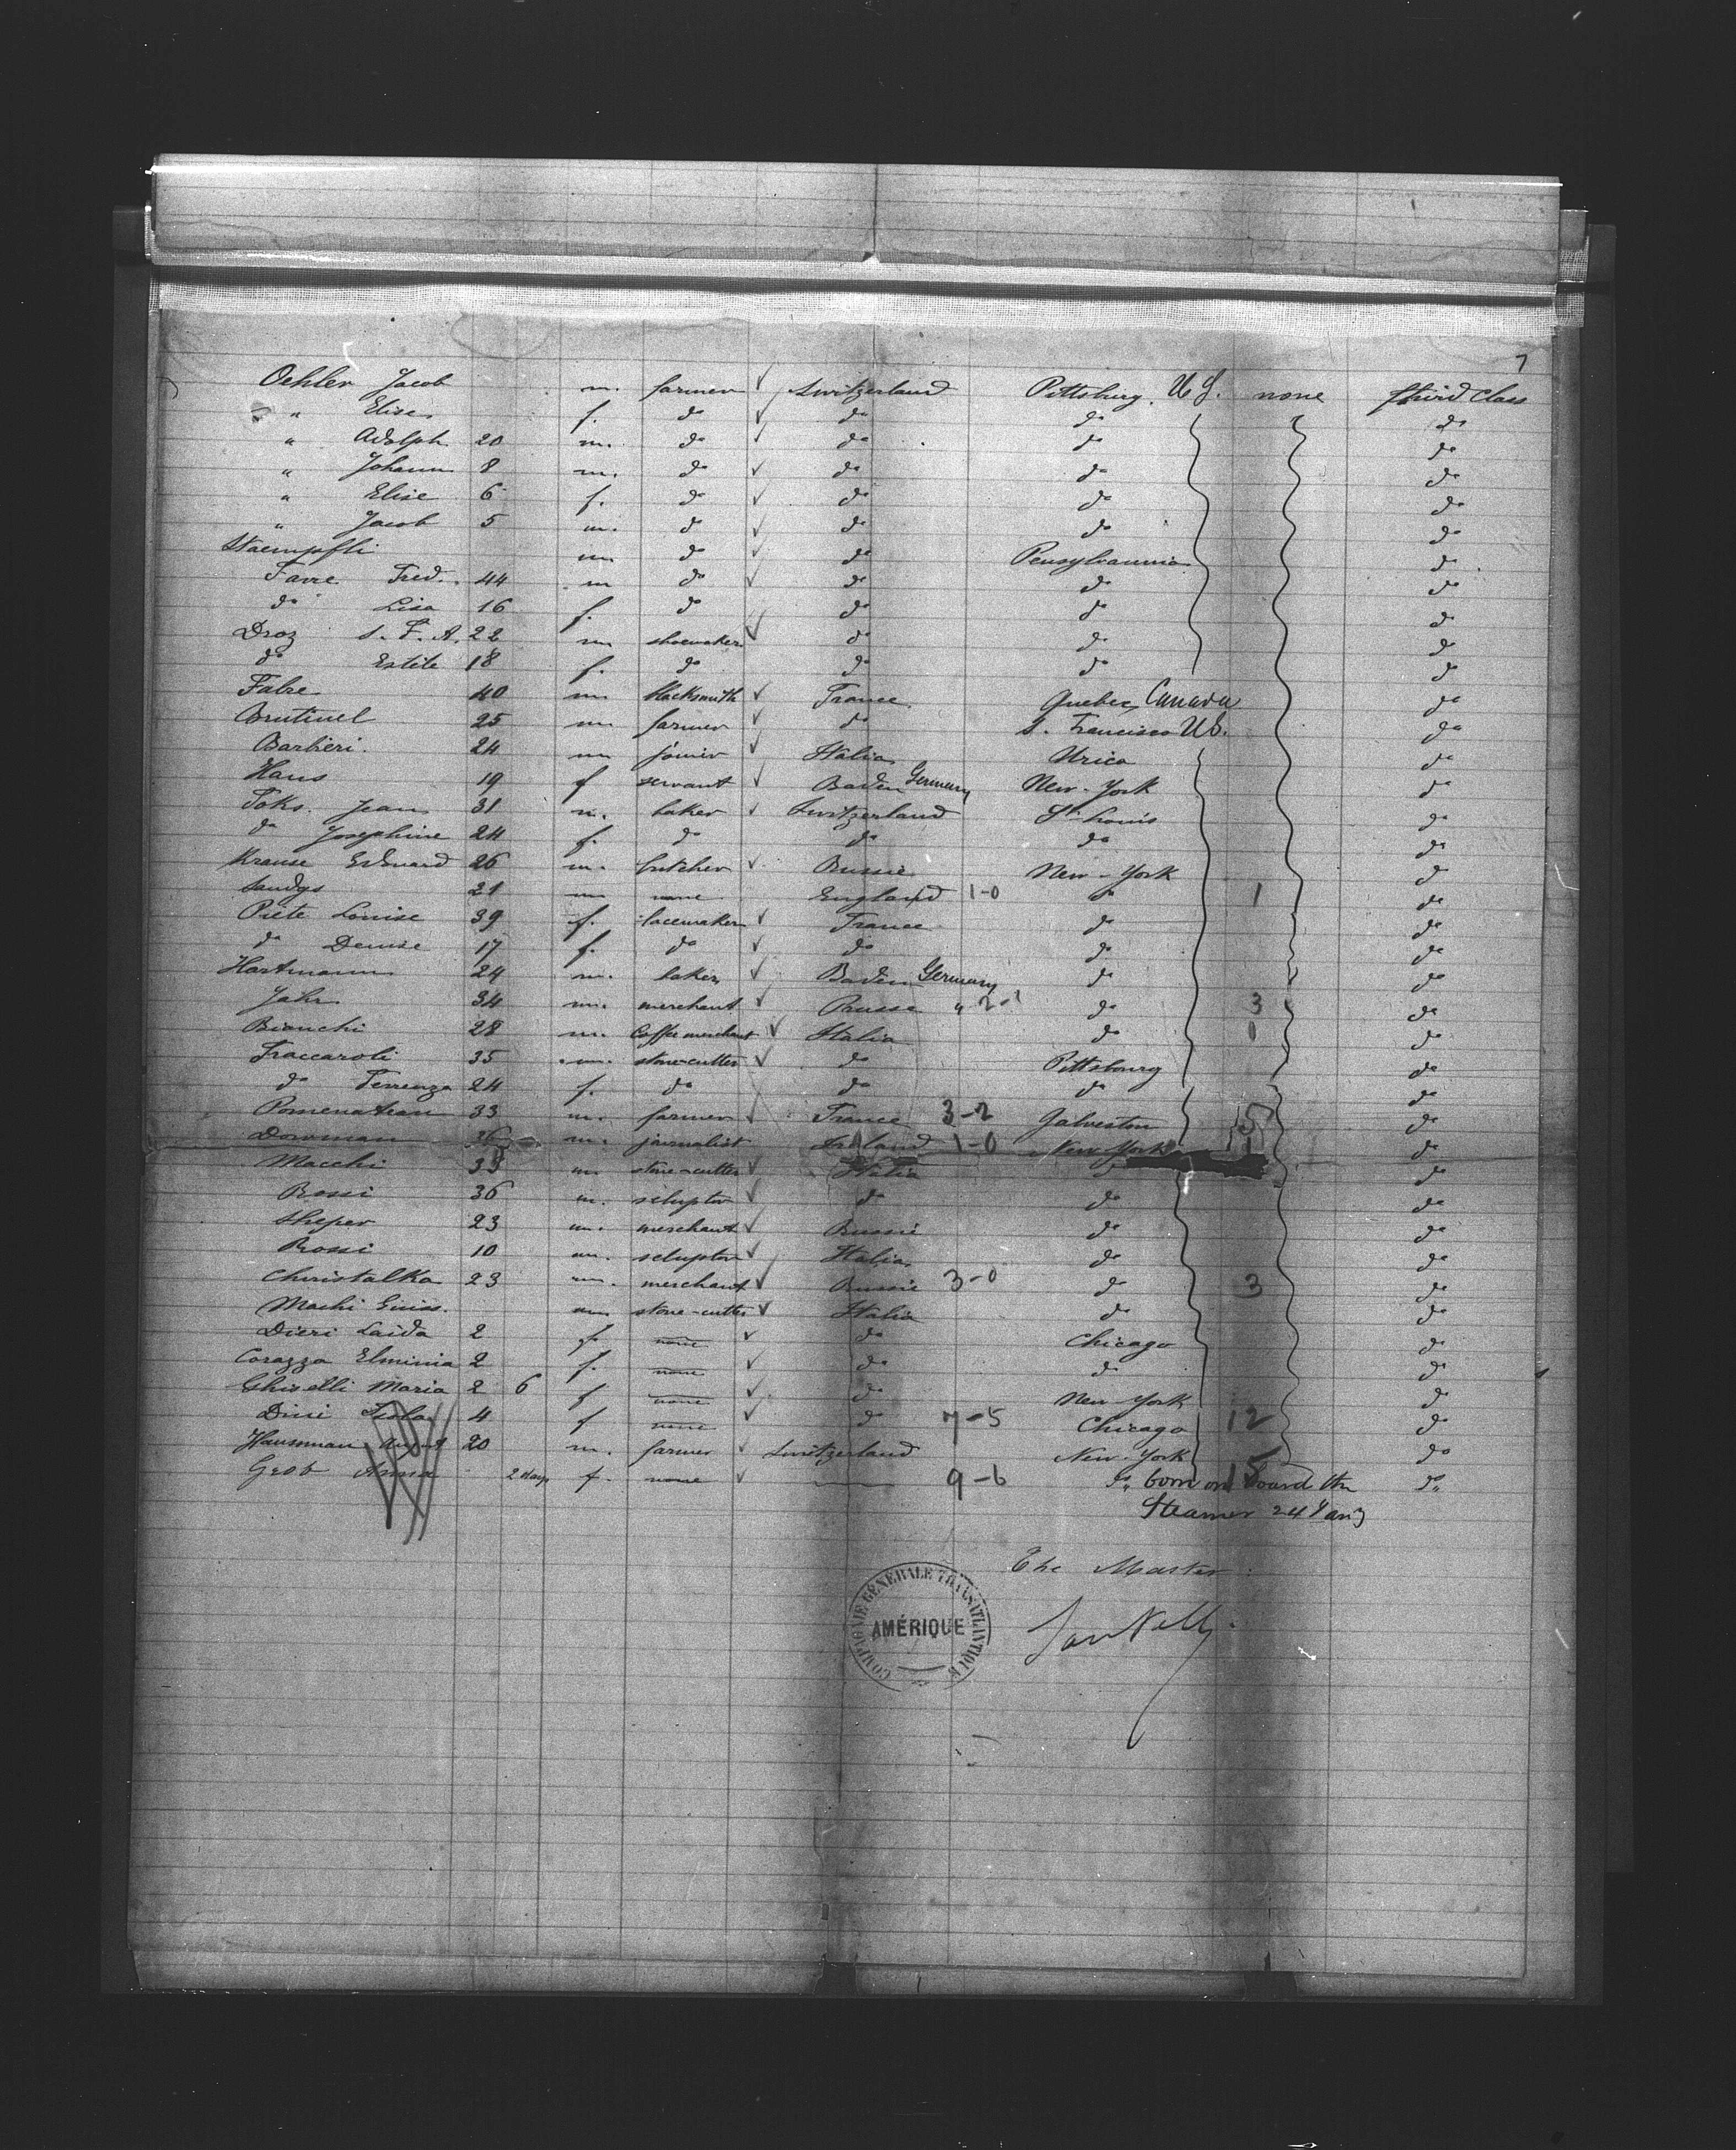 7
Oehler Jacob m. farmer ✓ Switzerland Pittsburg. U S. none third Class
" Elise f. do ✓ do do do
" Adolph 20 m. do ✓ do do do
" Johann 8 m. do ✓ do do do
" Elise 6 f. do ✓ do do do
" Jacob 5 m. do ✓ do do do
Staempfli m do ✓ do Pensylvannia do
Favre Fred. 44 m do ✓ do do do
do Lisa 16 f. do do do do
Droz S. F. A. 22 m shoemaker ✓ do do do
do Estite 18 f. do do do do
Fabre 40 m blacksmith ✓ France Quebec, Canada do
Brutinel 25 m farmer ✓ do S. Francisco US. do
Barbieri. 24 m joinir ✓ Italia Urica do
Haus 19 f servant ✓ Baden Germany New-York do
Toks. Jean 31 m. baker ✓ Switzerland St Louis do
do Josephine 24 f. do do do do
Krause Edouard 26 m. butcher ✓ Russie New-York do
Sandys 21 m none England 1-0 do 1 do
Piete Louise 39 f. lacemaker ✓ France do do
do Denise 17 f. do ✓ do do do
Hartmann 24 m. baker ✓ Baden Germany do do
Jahr 34 m. merchant ✓ Prusse " 2-1 do 3 do
Bianchi 28 m. Coffee merchant ✓ Italia do 0 do
Fraccaroli 35 m. stone-cutter ✓ do Pittsbourg do
do Terrenza 24 f. do do do do
Pomenateau 33 m. farmer ✓ France 3-2 Galveston 5 do
Dowman 36 m. journalist Ireland 1-0 New-York 1 do
Macchi 35 m stone-cutter ✓ Italia do
Bossi 36 m. scluptor ✓ do do do
Sheper 23 m. merchant ✓ Russie do do
Rossi 10 m. sclupton ✓ Italia do do
Christalka 23 m. merchant ✓ Russie 3-0 do 3 do
Machi Guiss. m stone-cutter ✓ Italia do do
Dieri Laida 2 f. none ✓ do Chicago do
Corazza Elminia 2 f. none ✓ do do do
Ghiselli Maria 2 6 f none ✓ do New-York do
Dini 4 f none ✓ do 7-5 Chicago 12 do
Hausmann August 20 m. farmer ✓ Switzerland New-York do
Grob Anna 2 days f. none ✓ 9-6 do born on board the do
Steamer 24
The Master
COMPAGNIE GÉNÉRALE TRANSATLANTIQUE
AMÉRIQUE